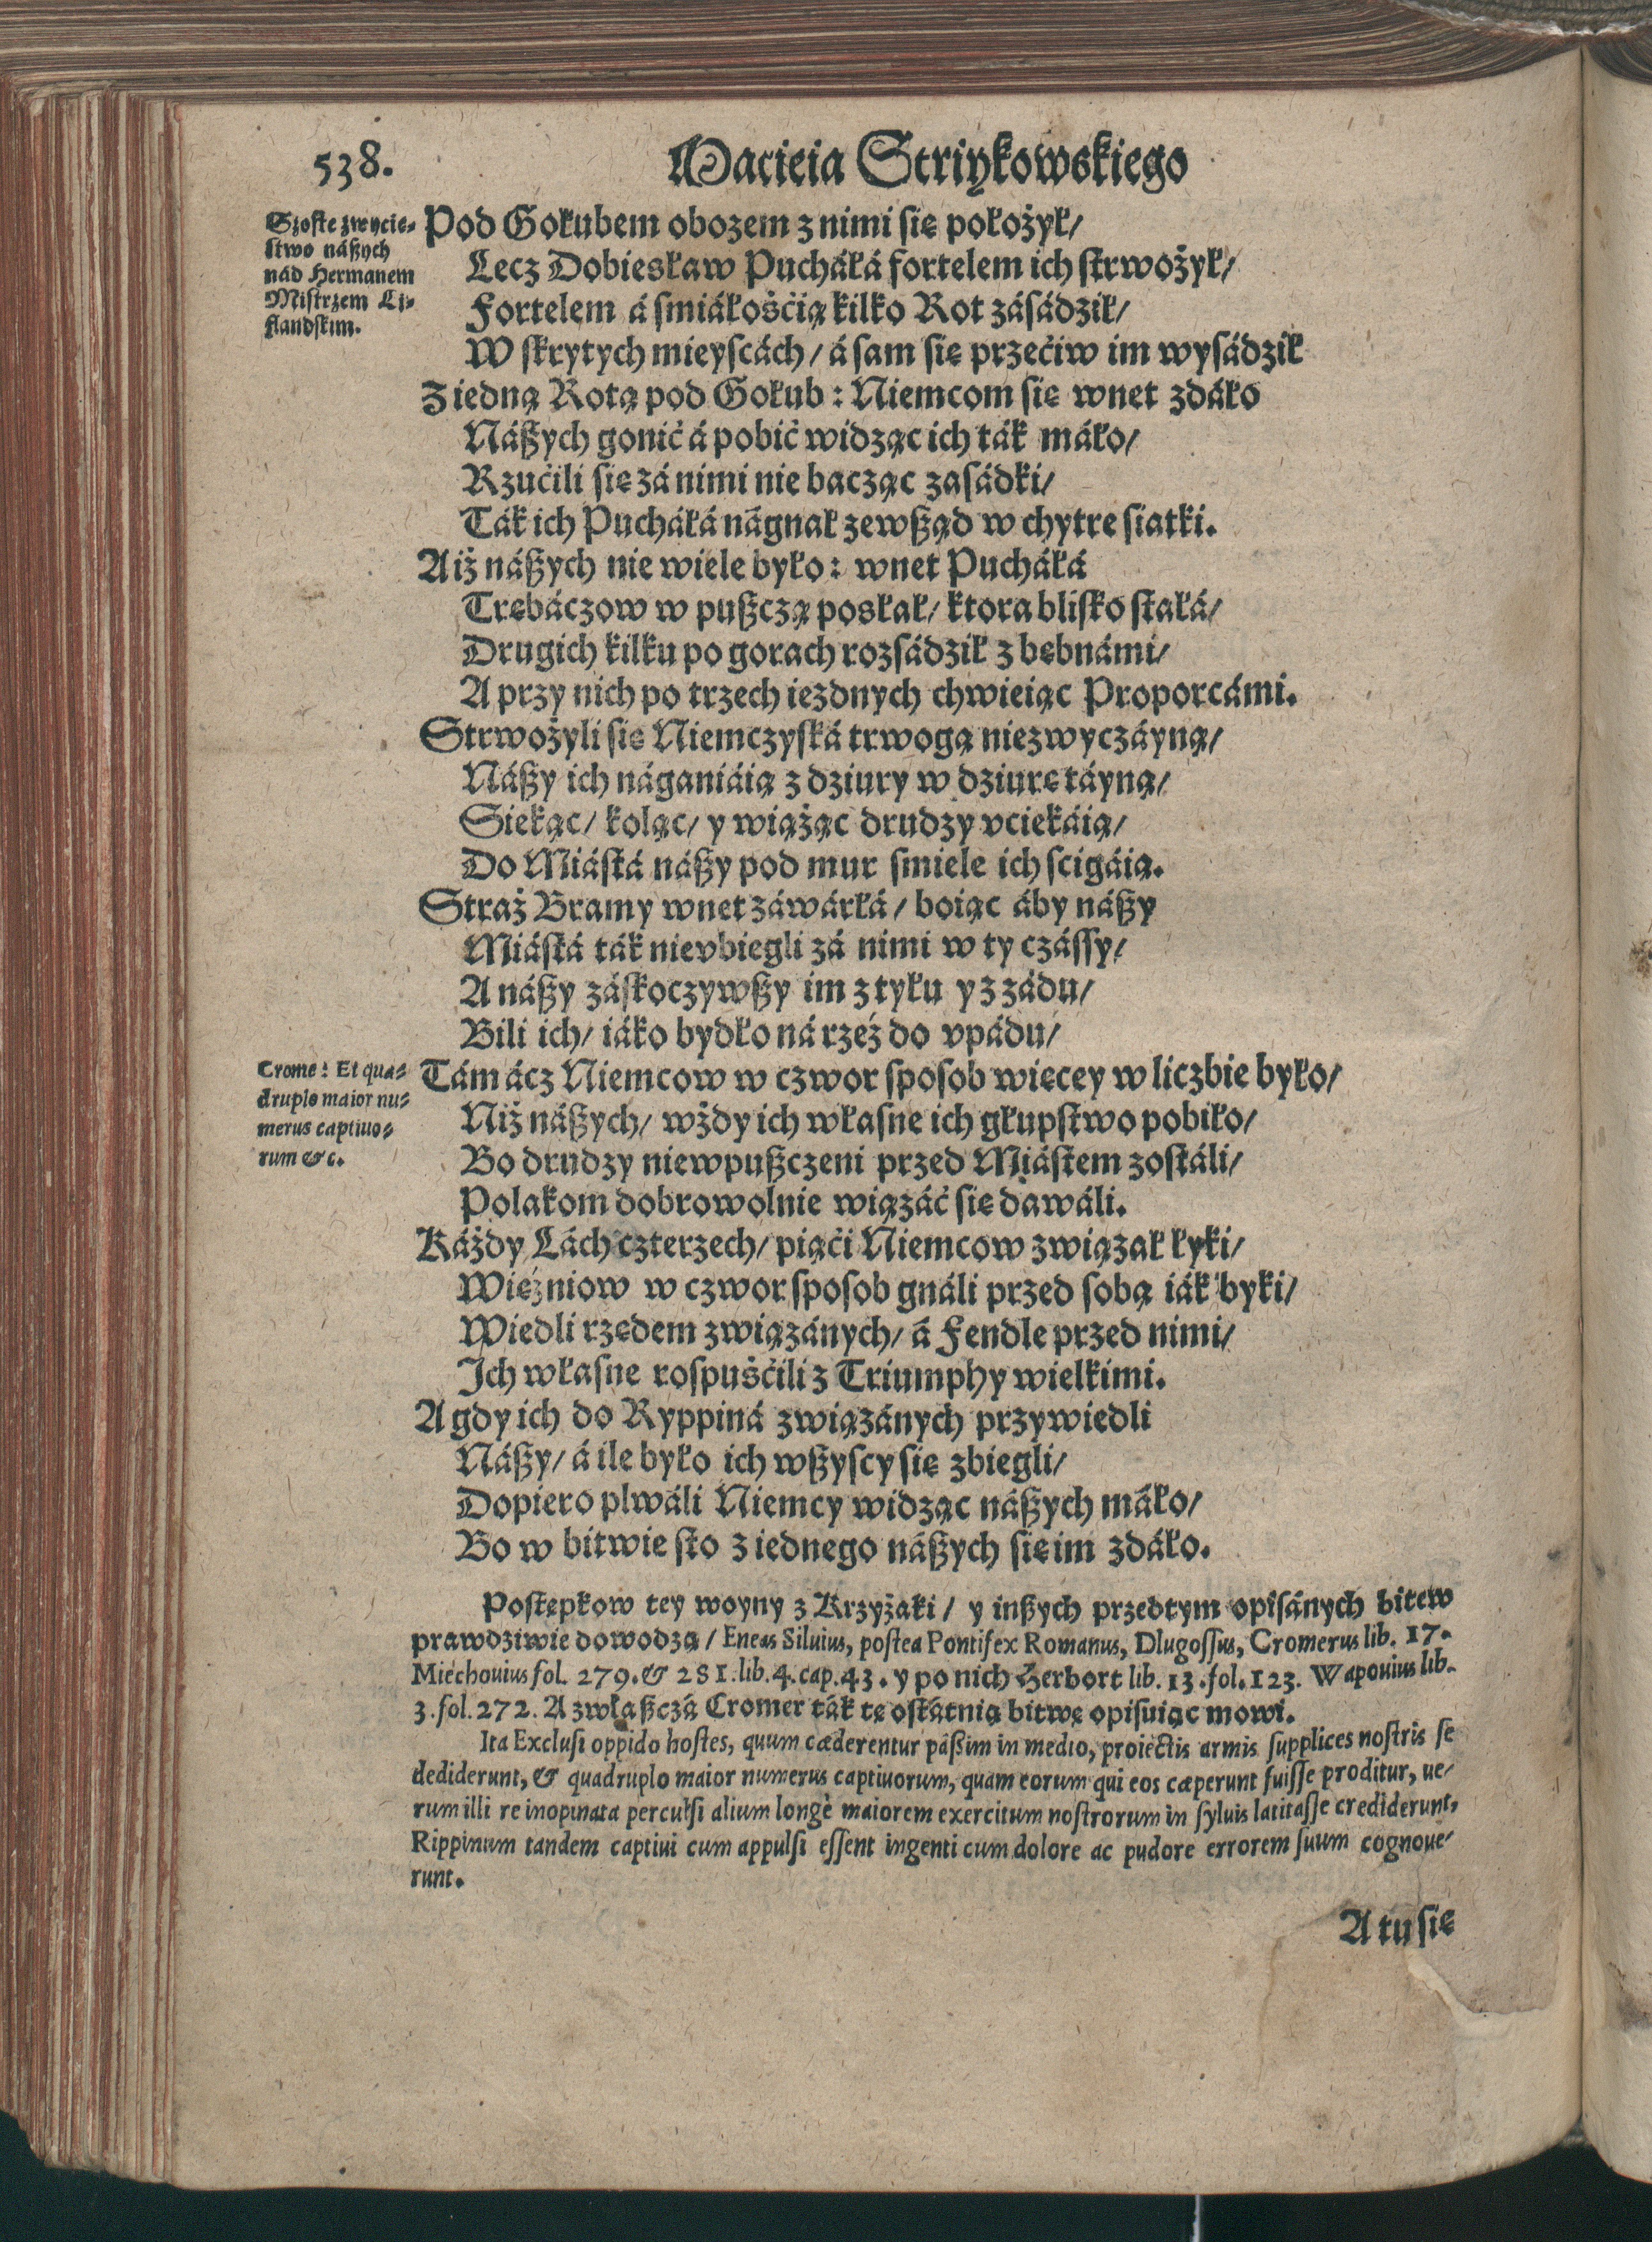 538.
Macieia Striykowskiego
Szoste zwycię-
stwo nászych
nád Hermanem
Mistrzem Li-
flandskim.
Pod Gołubem obozem z nimi się położył/
Lecz Dobiesław Pucháłá fortelem ich strwożył/
Fortelem á smiáłośćią kilko Rot zásádził/
W skrytych mieyscách/ á sam się przećiw im wysádził
Z iedną Rotą pod Gołub: Niemcom się wnet zdáło
Nászych gonić á pobić widząc ich ták máło/
Rzućili się zá nimi nie bacząc zasádki/
Ták ich Pucháłá nágnał zewsząd w chytre siatki.
A iż nászych nie wiele było: wnet Pucháłá
Trębáczow w puszczą posłał/ ktora blisko stałá/
Drugich kilku po gorach rozsádził z bębnámi/
A przy nich po trzech iezdnych chwieiąc Proporcámi.
Strwożyli się Niemczyská trwogą niezwyczáyną/
Nászy ich nágániáią z dziury w dziurę táyną/
Siekąc/ koląc/ y wiążąc drudzy vciekáią/
Do Miástá nászy pod mur smiele ich scigáią.
Straż Bramy wnet záwárłá/ boiąc áby nászy
Miástá ták nievbiegli zá nimi w ty czássy/
A nászy záskoczywszy im z tyłu y z zádu/
Bili ich/ iáko bydło ná rzeź do vpádu/
Crome: Et qua-
druplo maior nu-
merus captiuo-
rum &c.
Tám ácz Niemcow w czwor sposob więcey w liczbie było/
Niż nászych/ wżdy ich własne ich głupstwo pobiło/
Bo drudzy niewpuszczeni przed Miástem zostáli/
Polakom dobrowolnie wiązáć się dawáli.
Káżdy Lách czterzech/ piąći Niemcow związał łyki/
Więźniow w czwor sposob gnáli przed sobą iák byki/
Wiedli rzędem związánych/ á Fendle przed nimi/
Ich własne rospuśćili z Triumphy wielkimi.
A gdy ich do Ryppiná związánych przywiedli
Nászy/ á ile było ich wszyscy się zbiegli/
Dopiero plwáli Niemcy widząc nászych máło/
Bo w bitwie sto z iednego nászych się im zdáło.
Postępkow tey woyny z Krzyżaki/ y inszych przedtym opisánych bitew
prawdziwie dowodzą/ Eneas Siluius, postea Pontifex Romanus, Dlugossus, Cromerus lib. 17.
Miechouius fol. 279. & 281. lib. 4. cap. 43. y po nich Herbort lib. 13. fol. 123. Wapouius lib.
3. fol. 272. A zwłaszczá Cromer ták tę ostátnią bitwę opisuiąc mowi.
Ita Exclusi oppido hostes, quum cæderentur passim in medio, proiectis armis supplices nostris se
dediderunt, & quadruplo maior numerus captiuorum, quam eorum qui eos cæperunt fuisse proditur, ue-
rum illi re inopinata perculsi alium longè maiorem exercitum nostrorum in syluis latitasse crediderunt,
Rippinum tandem captiui cum appulsi essent ingenti cum dolore ac pudore errorem suum cognoue-
runt.
A tu się